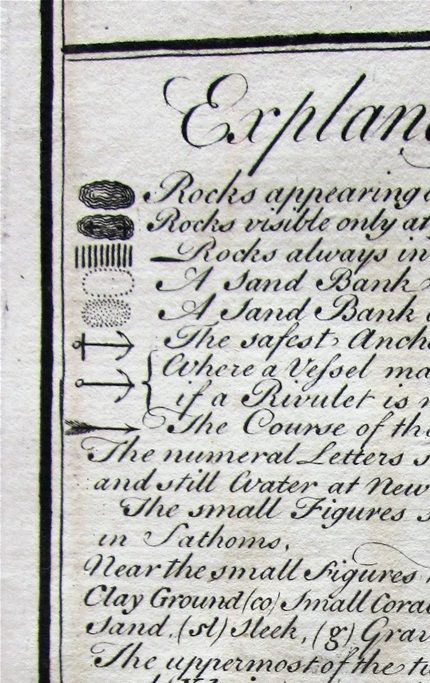 Explan
Rocks appearing
Rocks visible only at
Rocks always in
A Sand Bank
A Sand Bank
The safest Ancho
Where a Vessel ma
if a Rivulet is
The Course of th
The numeral Letters s
and still Water at New
The small Figures s
in Fathoms.
Near the small Figures
Clay Ground (co) Small Cora
Sand, (sl) Sleek, (g) Grav
The uppermost of the t